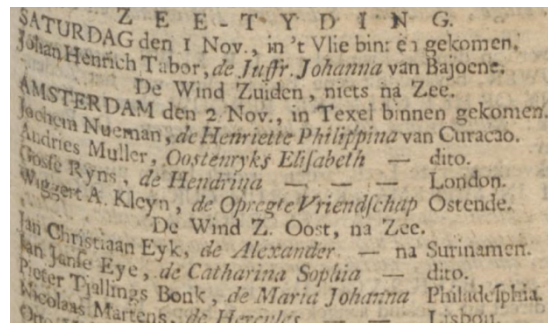 ZEE-TYDING.
SATURDAG den 1 Nov., in 't Vlie bin: en gekomen.
Johan Henrich Tabor, de Juffr. Johanna van Bajoene.
De Wind Zuiden, niets na Zee.
AMSTERDAM den 2 Nov., in Texel binnen gekomen.
Jochem Nueman, de Henriette Philippina van Curacao.
Andries Muller, Oostenryks Elisabeth — dito.
Gosse Ryns, de Hendrina — — — London.
Wiggert A. Kleyn, de Opregte Vriendschap Ostende.
De Wind Z. Oost, na Zee.
Jan Christiaan Eyk, de Alexander — na Surinamen.
Jan Janse Eye, de Catharina Sophia — dito.
Pieter Tjallings Bonk, de Maria Johanna Philadelphia.
Nicolaas Martens, de Hercules — — Lisbon.